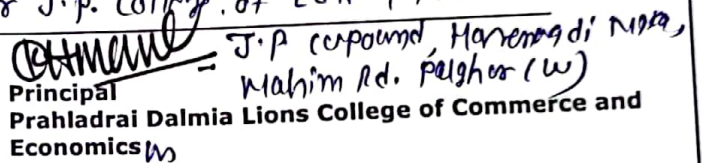 J.P. College, of
J.P compound,
Mahim Rd. Palghar (W)
Principal
Prahladrai Dalmia Lions College of Commerce and
Economics